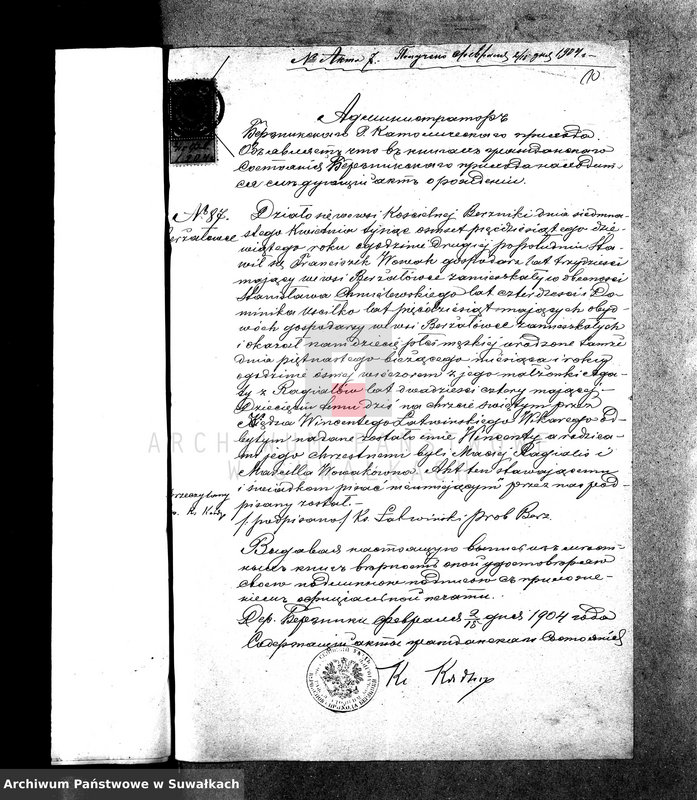 № Акта 7. Получено февраля 2/15 дня 1904 г.
Администраторъ
Бержникского Р Католического прихода
Объявляетъ что въ книгахъ гражданского
Состоянія Бержникского прихода находит-
ся слѣдующій актъ о рожденіи.
№ 87.
Berżałowce
Działo się we wsi Kościelnej Berżniki dnia siedmna-
stego Kwietnia tysiąc ośmset pięćdziesiątego dzie-
wiątego roku o godzinie drugiej popołudniu sta-
wił się Franciszek Nowak gospodarz lat trzydzieści
mający we wsi Berżałowce zamieszkały w obecności
Stanisława Chmielewskiego lat czterdzieści i Do-
minika Usiłko lat pięćdziesiąt mających obyd-
wóch gospodarzy w wsi Berżałowce zamieszkałych
i okazał nam dziecię płci męskiej urodzone tamże
dnia piętnastego bieżącego miesiąca i roku o
godzinie ósmej wieczorem z jego małżonki Aga-
ty z Ragiałów lat dwadzieścia cztery mającej.-
Dziecięciu temu dziś na chrzcie świętym przez
Księdza Wincentego Łatwińskiego Wikarego od-
bytym nadane zostało imię Wincenty a rodzica-
mi jego chrzestnemi byli Maciej Ragialis i
Marcella Nowakówna. Akt ten stawającemu
i świadkom pisać nieumiejącym przez nas pod-
pisany został.-
/podpisano/ Ks. Łatwiński Prob Berz.
Выдавая настоящую выпись изъ мѣст-
ныхъ книгъ вѣрность оной удостовѣряю
своею подписью съ приложе-
ніемъ официальной печати.
Дер. Бержники февраля 2/15 дня 1904 года
Содержащій акты гражданского Состоянія
Кс
ARCHIWUM PAŃSTWOWE
W SUWAŁKACH
Archiwum Państwowe w Suwałkach